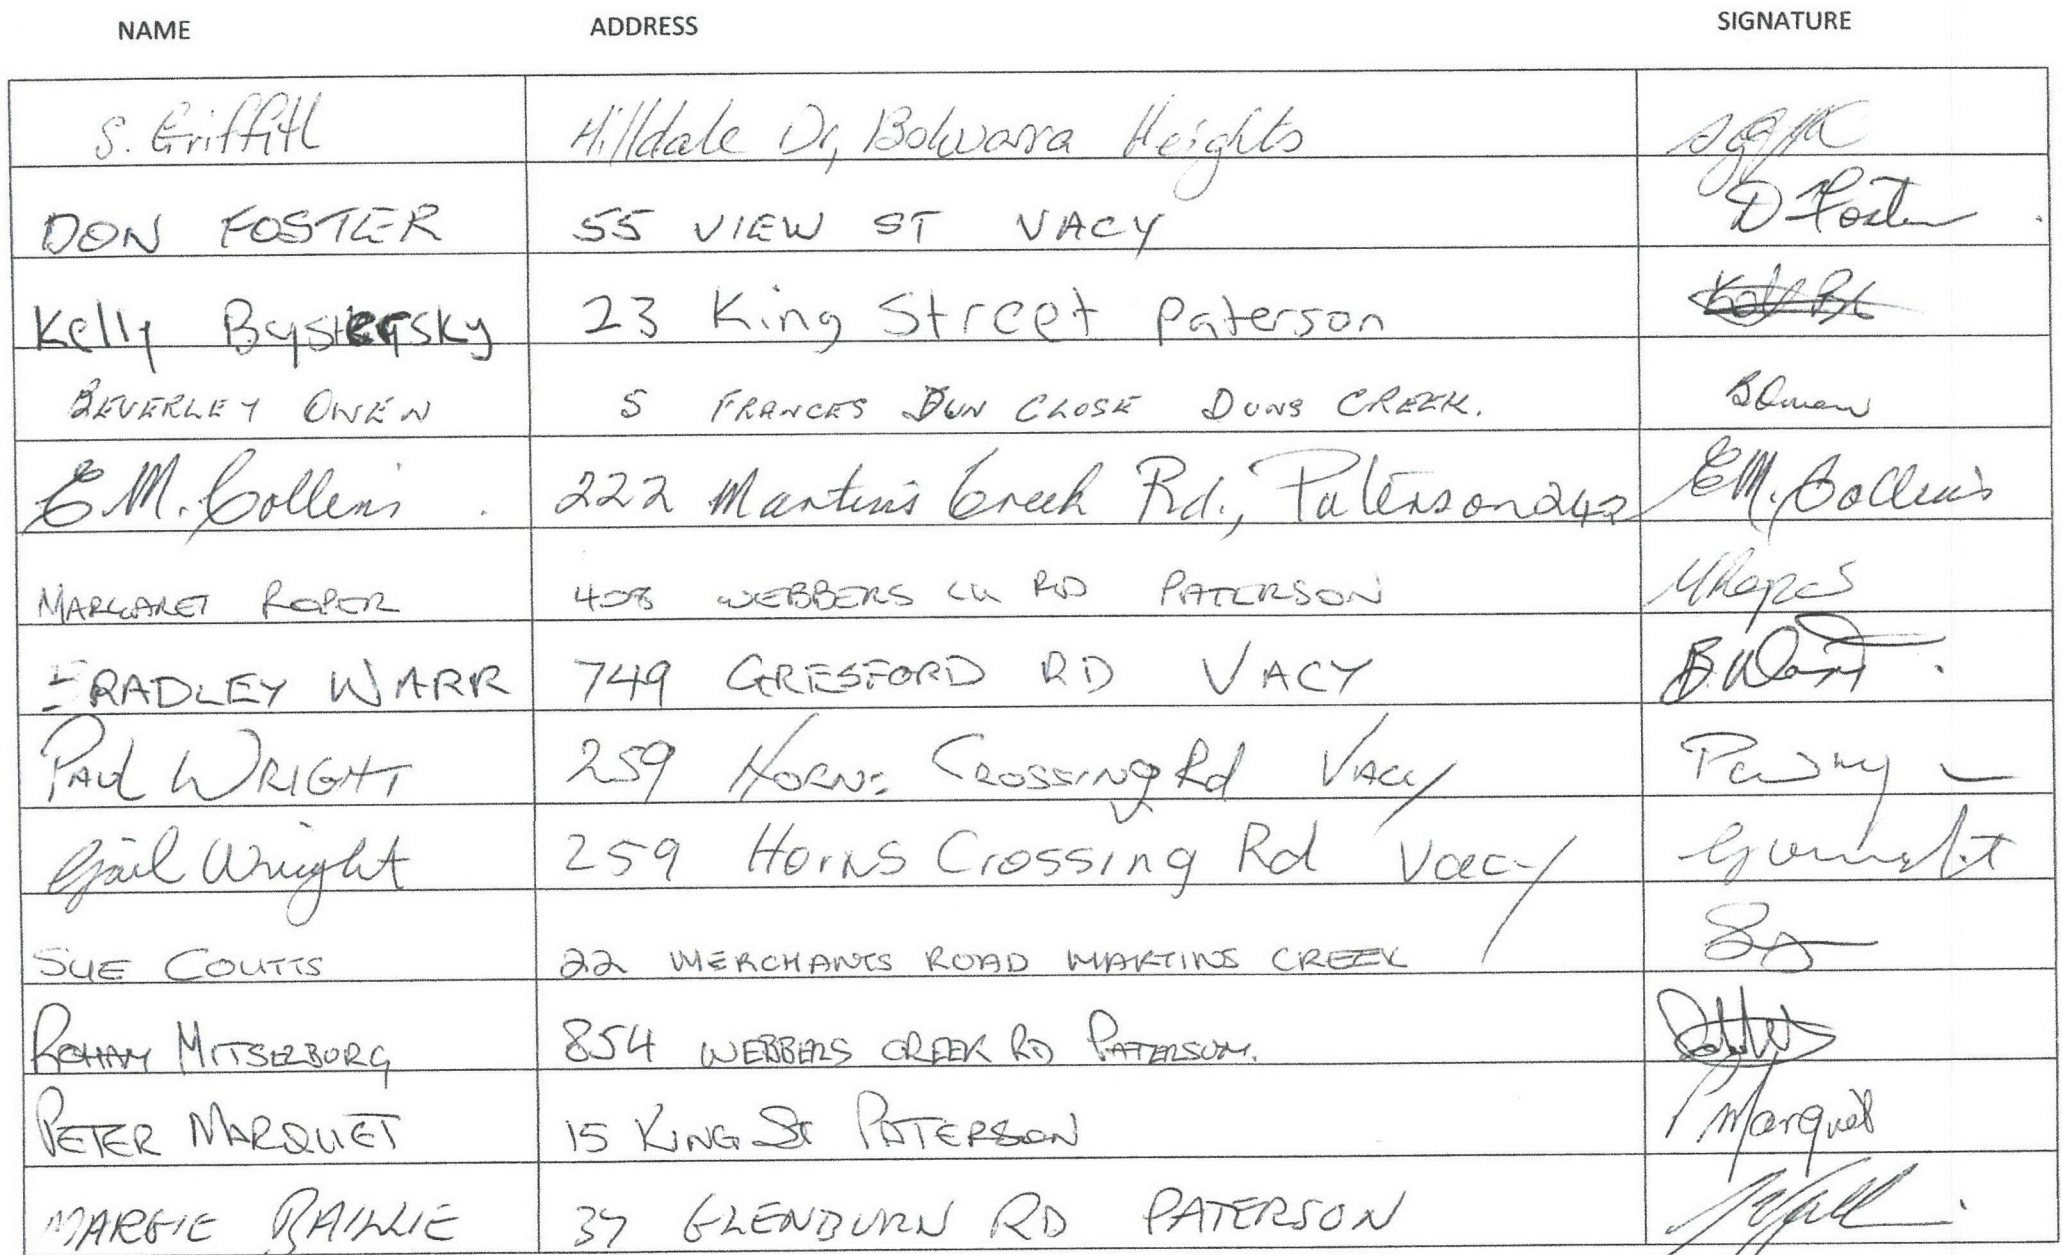 NAME ADDRESS SIGNATURE
S. Griffith Hilldale Dr, Bolwarra Heights
DON FOSTER 55 VIEW ST VACY D Foster
Kelly 23 King Street Paterson
BEVERLEY OWEN 5 FRANCES DUN CLOSE DUNS CREEK. BOwen
E.M. Collins. 222 Martins Creek Rd., Paterson 242 EM. Collins
MARGARET ROPER 408 WEBBERS CK RD PATERSON MRoper
BRADLEY WARR 749 GRESFORD RD VACY B. Warr
PAUL WRIGHT 259 HORNS CROSSING Rd VACY
Gail Wright 259 Horns Crossing Rd Vacy GWright
SUE COUTTS 22 MERCHANTS ROAD MARTINS CREEK
MITSZBURG 854 WEBBERS CREEK RD PATERSON.
PETER MARQUET 15 KING St PATERSON P Marquet
MARGIE BAILLIE 37 GLENBURN RD PATERSON